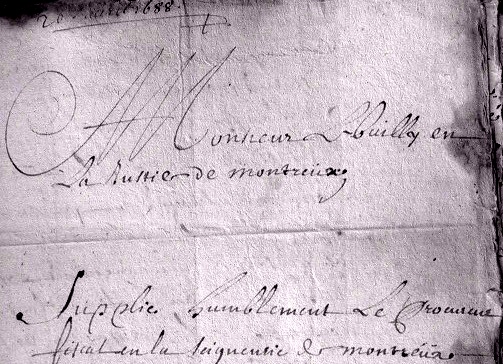 1688
A Monsieur Le Bailly en
La Justice de montreux
Supplie humblement Le Procureur
fiscal en la seigneurie de montreux